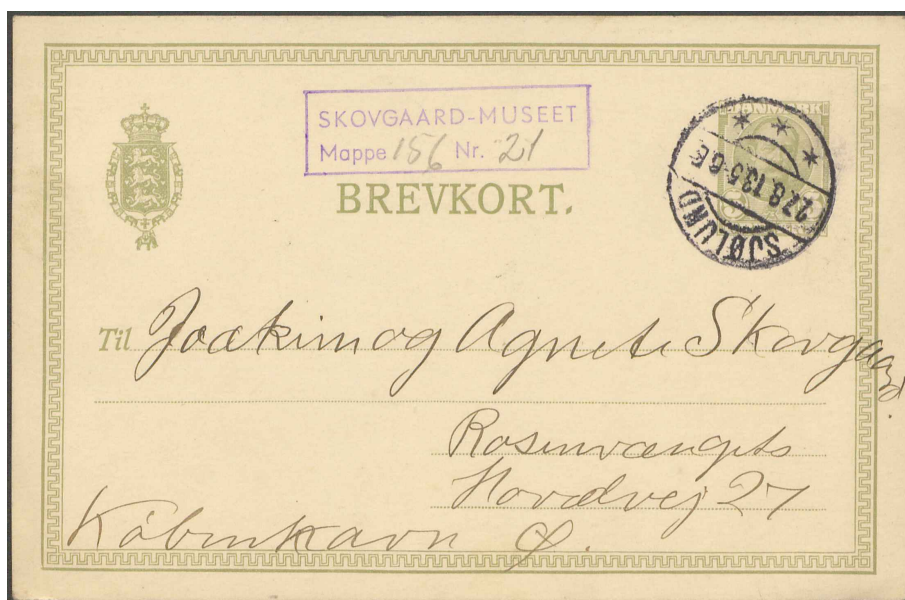 SKOVGAARD-MUSEET
Mappe 156 Nr. 21
BREVKORT.
DANMARK
SJØLUND
27.8.13 5-6 E
Til Joakim og Agnete Skovgaard.
Rosenvængets
Hovedvej 27
København Ø.